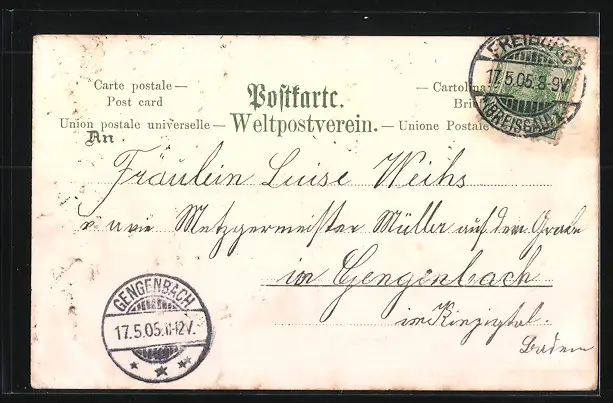 Carte postale —
Post card
Postkarte.
— Cartolina
Union postale universelle — Weltpostverein. — Unione Postale
An
FREIBURG
17.5.05.8-9V
(BREISGAU)
Fräulein Luise Weihs
Metzgermeister Müller auf dem Grabe
in Gengenbach
im Kinzigtal.
Baden
GENGENBACH
17.5.05.11-12V.